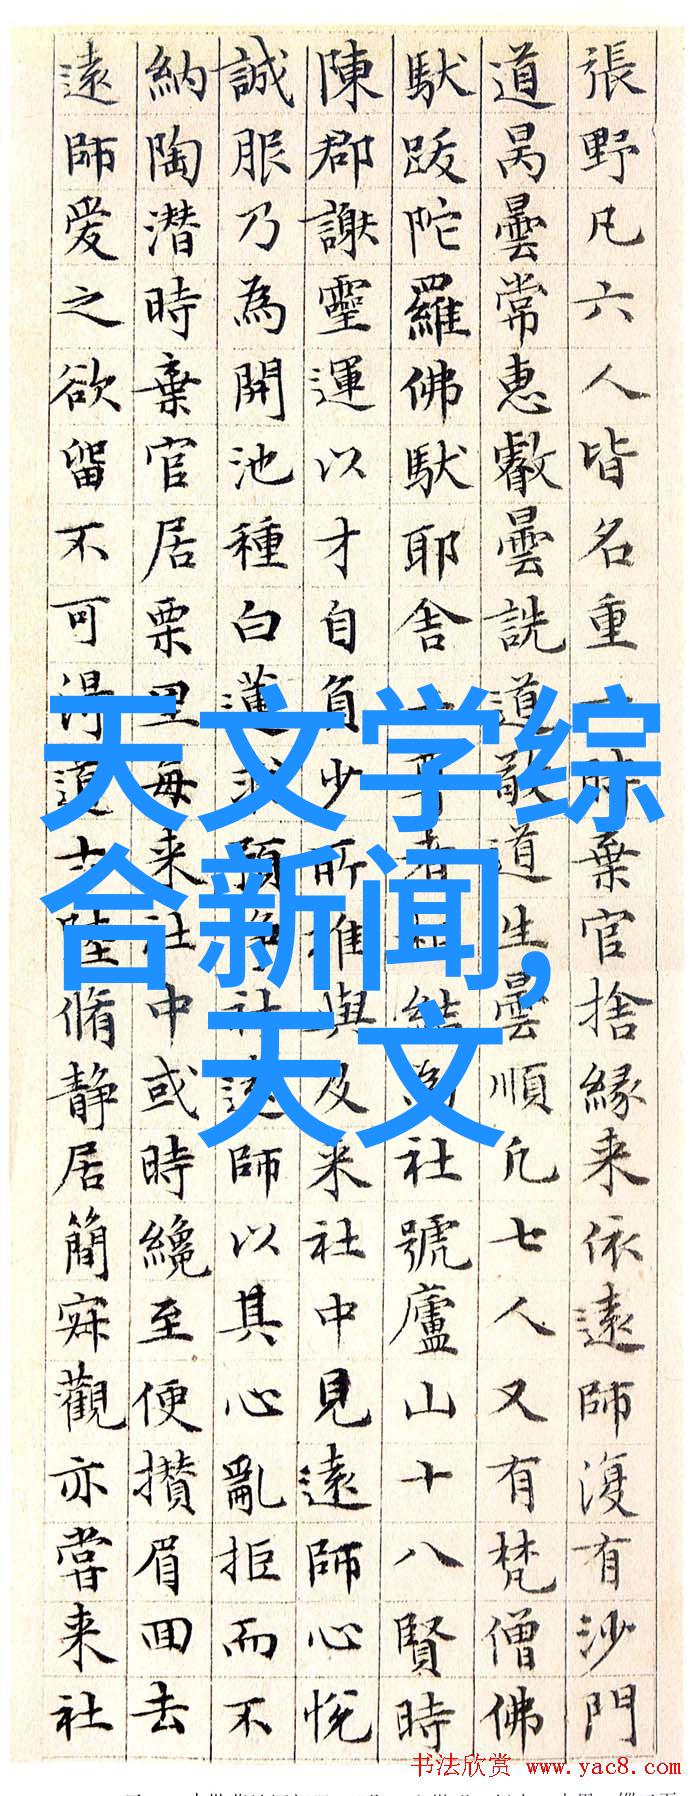 張野凡六人皆名重一時棄官捨緣来依遠師復有沙門
道昺曇常惠叡曇詵道敬道生曇順凡七人又有梵僧佛
馱跋陀羅佛馱耶舍二尊者相結為社號廬山十八賢時
陳郡謝靈運以才自負少所推與及来社中見遠師心悅
誠服乃為開池種白蓮求預淨社遠師以其心亂拒而不
納陶潛時棄官居栗里每来社中或時纔至便攢眉回去
遠師愛之欲留不可得道士陸脩静居簡寂觀亦嘗来社
天文学综
合新闻,
天文
书法欣赏 www.yac8.com